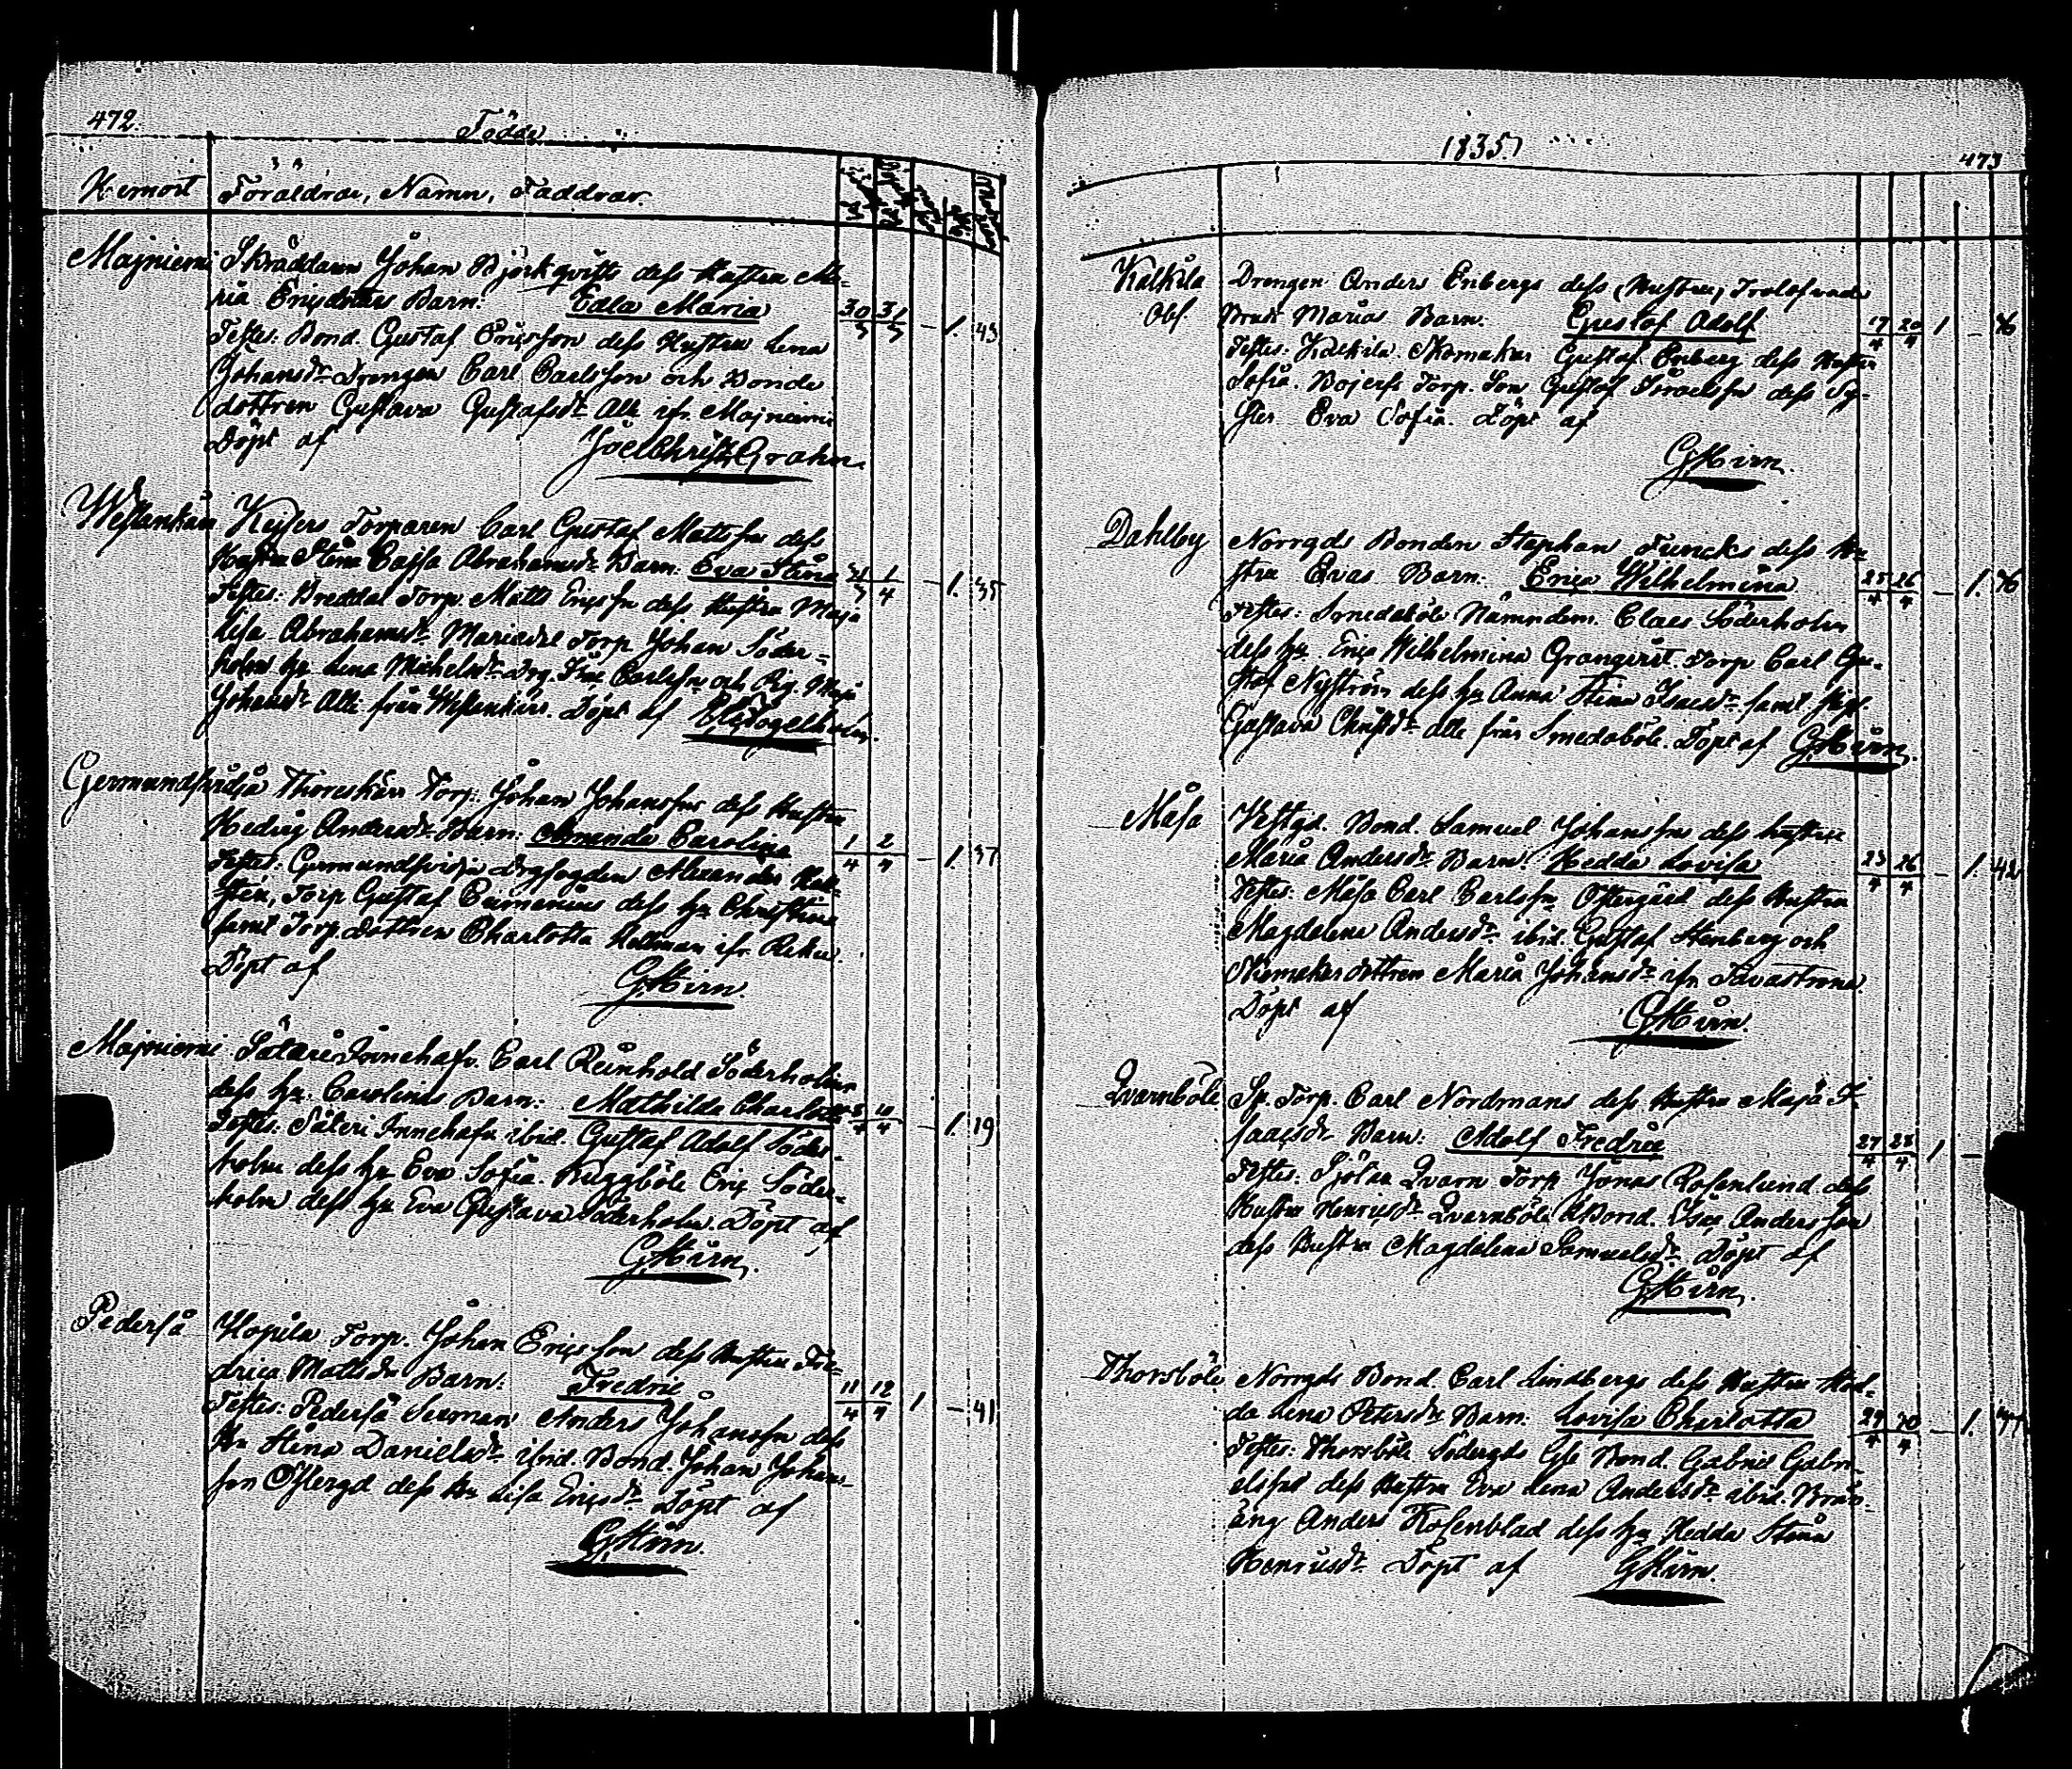 472. Födde
Hemort Föräldrar, Namn, Faddrar.
Majniemi Skräddaren Johan Björkqvists dess Hustru Ma-
ria Ericsdotters Barn: Edla Maria 30/3 31/3 – 1. 43
Testes: Bond. Gustaf Ericsson dess Hustru Lena
Johansdr Drengen Carl Carlsson och Bonde
dottren Gustava Gustafsdr Alle ifr. Majniemi
Döpt af Joel Christ. Grahn.
Westankärr Keisers Torparen Carl Gustaf Mattsns dess
Hustru Stina Cajsa Abrahamsdr Barn: Eva Stina 31/3 1/4 – 1. 35
Testes: Breddal Torp. Matts Ericsn dess Hustru Maja
Lisa Abrahamsdr Mariedal Torp Johan Söder-
holm hu Lena Michelsdr Drg. Isac Carlsn och Pig. Maja
Johansdr Alle från Westankärr. Döpt af
Germundsvidja Thoreskärr Torp. Johan Johanssns dess Hustru
Hedvig Andersdr Barn: Amanda Carolina 1/4 2/4 – 1. 37
Testes: Germundsvidja Drgfogden Alexander Hell-
stén, Torp Gustaf dess hu Christina
samt Torp. dottren Charlotta Hellman ifr.
Döpt af GHirn.
Majniemi Säteri Innehafv. Carl Reinhold Söderholms
dess hu Carolinas Barn: Mathilda Charlotta /4 /4 – 1. 19
Testes: Säteri Innehafv ibid. Gustaf Adolf Söder-
holm dess hu Eva Sofia. Ruggböle Eric Söder-
holm dess hu Eva Gustava Söderholm. Döpt af
GHirn.
Pederså Kopila Torp. Johan Ericssons dess Hustru Fre-
drica Mattsdr Barn: Fredric 11/4 12/4 1 – 41
Testes: Pederså Sexman Anders Johanssn dess
Hu Stina Danielsdr ibid. Bond. Johan Johans-
son Östergd dess hu Lisa Ericsdr Döpt af
GHirn.
1835. 473
Kalkila Drengen Anders Enbergs dess (Hustru) Trolofvade
Obs Brud Marias Barn: Gustaf Adolf 17/4 20/4 1 –
Testes: Kalkila Skomakar Gustaf Enberg dess Hustru
Sofia. Torp. Son Gustaf Israelssn dess Sy-
ster Eva Sofia. Döpt af
GHirn.
Dahlby Norrgds Bonden Stephan Funcks dess Hu-
stru Evas Barn: Erica Wilhelmina 25/4 26/4 – 1.
Testes: Smedaböle Nämndem. Claes Söderholm
dess hu Erica Wilhelmina Granqvist. Torp Carl Gu-
staf Nyström dess hu Anna Stina Isacsdr samt Pig.
Gustava Christdr alle från Smedaböle. Döpt af GHirn.
Måsa Westgd. Bond. Samuel Johanssns dess hustru
Maria Andersdr Barn: Hedda Lovisa 23/4 26/4 – 1. 42
Testes: Måsa Carl Carlssn Östergård dess Hustru
Magdalena Andersdr ibid. Gustaf Stenberg och
Skomakar dottren Maria Johansdr ifn Tavastrona.
Döpt af GHirn.
Qvarnböle Torp. Carl Nordmans dess Hustru Maja I-
saacsdr Barn: Adolf Fredric 27/4 28/4 1 –
Testes: Sjölax Qvarn Torp Jonas Rosenlund dess
Hustru Henricsdr Qvarnböle Bond. Isac Andersson
dess Hustru Magdalena Samuelsdr Döpt af
GHirn.
Thorsböle Norrgds Bond. Carl Lindbergs dess Hustru Hed-
da Lena Petersdr Barn: Lovisa Charlotta 29/4 30/4 – 1.
Testes: Thorsböle Södergds Bond. Gabriel Gabri-
elssns dess Hustru Eva Lena Andersdr ibid.
äng Anders Rosenblad dess hu Hedda Stina
Henricsdr Döpt af GHirn.